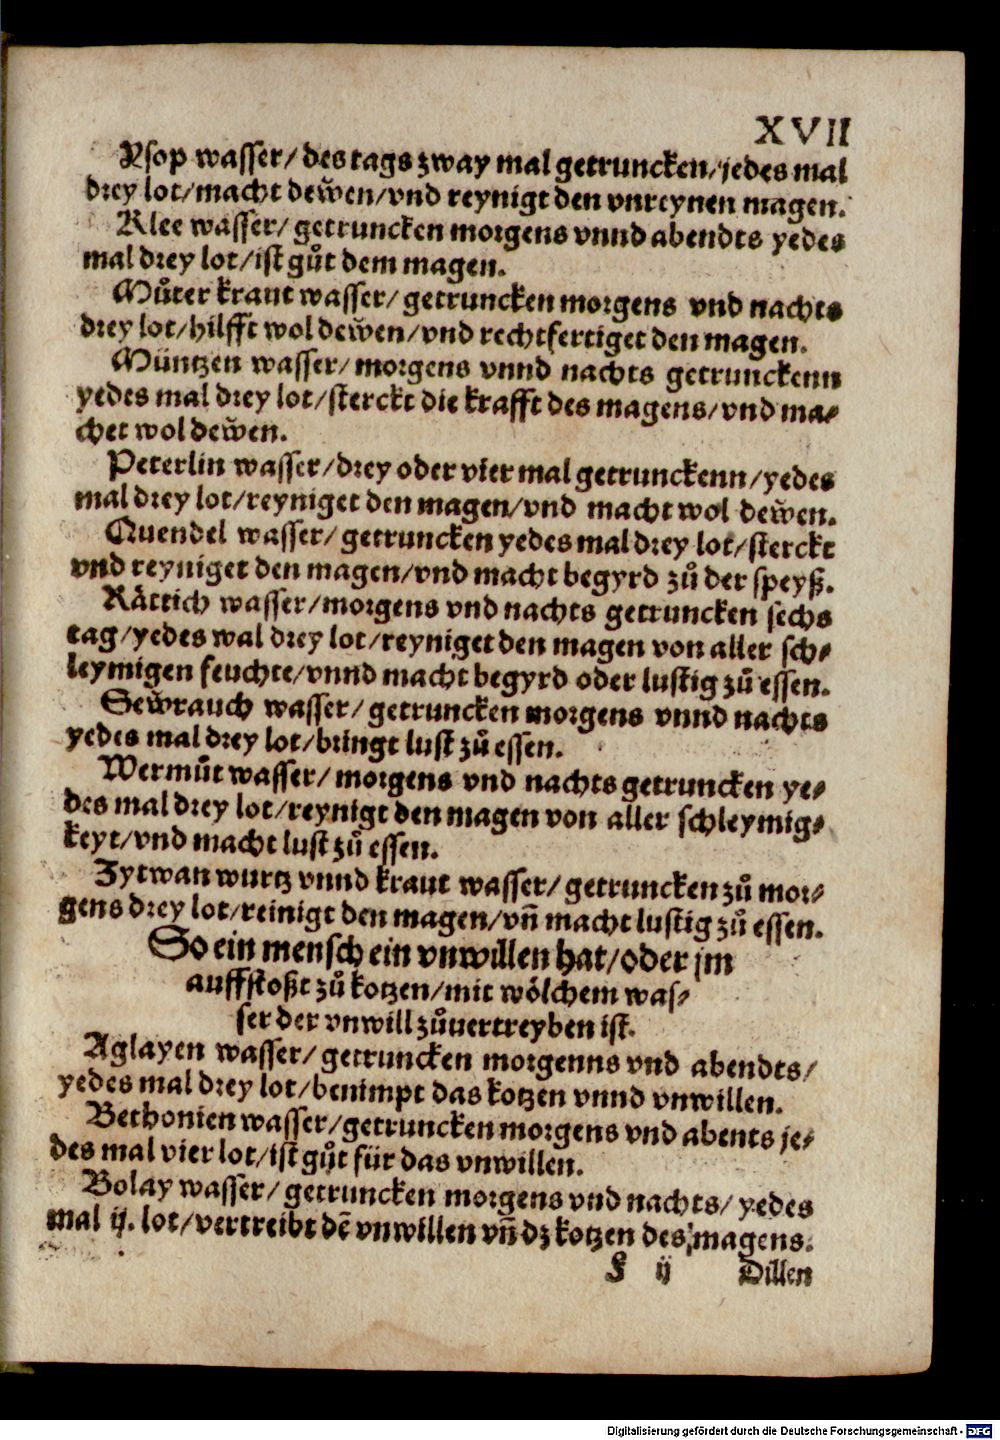 XVII
Ysop wasser/ des tags zway mal getruncken/ jedes mal
drey lot/ macht dew̆en/ vnd reynigt den vnreynen magen.
Klee wasser/ getruncken morgens vnnd abendts yedes
mal drey lot/ ist gůt dem magen.
Můter kraut wasser/ getruncken morgens vnd nachts
drey lot/ hilfft wol dew̆en/ vnd rechtfertiget den magen.
Müntzen wasser/ morgens vnnd nachts getrunckenn
yedes mal drey lot/ sterckt die krafft des magens/ vnd ma⸗
chet wol dew̆en.
Peterlin wasser/ drey oder vier mal getrunckenn/ yedes
mal drey lot/ reyniget den magen/ vnd macht wol dew̆en.
Quendel wasser/ getruncken yedes mal drey lot/ sterckt
vnd reyniget den magen/ vnd macht begyrd zů der speyß.
Rättich wasser/ morgens vnd nachts getruncken sechs
tag/ yedes wal drey lot/ reyniget den magen von aller sch⸗
leymigen feuchte/ vnnd macht begyrd oder lustig zů essen.
Sew̆rauch wasser/ getruncken morgens vnnd nachts
yedes mal drey lot/ bringt lust zů essen.
Wermůt wasser/ morgens vnd nachts getruncken ye⸗
des mal drey lot/ reynigt den magen von aller schleymig⸗
keyt/ vnd macht lust zů essen.
Zytwan wurtz vnnd kraut wasser/ getruncken zů mor⸗
gens drey lot/ reinigt den magen/ vñ macht lustig zů essen.
So ein mensch ein vnwillen hat/ oder jm
auffstoßt zů kotzen/ mit wölchem was⸗
ser der vnwill zůuertreyben ist.
Aglayen wasser/ getruncken morgenns vnd abendts/
yedes mal drey lot/ benimpt das kotzen vnnd vnwillen.
Bethonien wasser/ getruncken morgens vnd abents je⸗
des mal vier lot/ ist gůt für das vnwillen.
Bolay wasser/ getruncken morgens vnd nachts/ yedes
mal ij. lot/ vertreibt dē vnwillen vñ dz kotzen des magens.
F ij Dillen
Digitalisierung gefördert durch die Deutsche Forschungsgemeinschaft - DFG